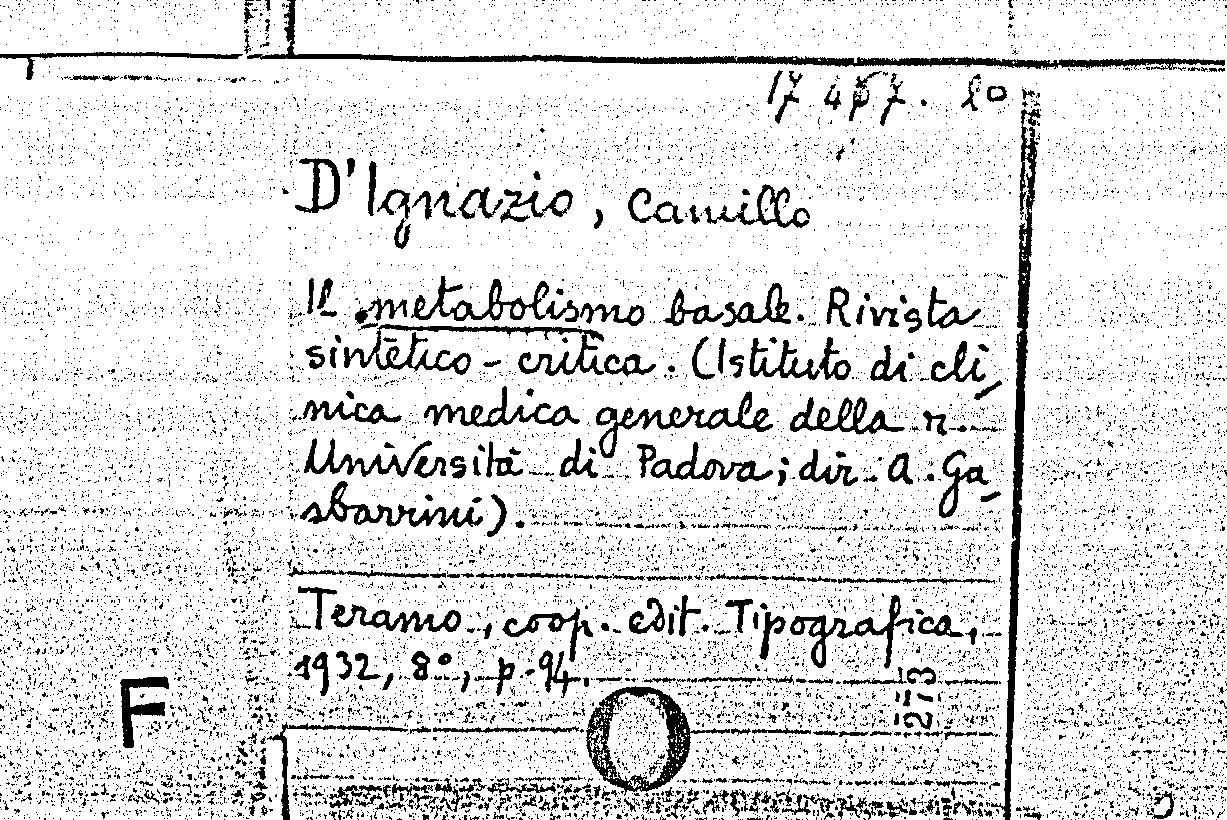 17 457. lo
D'Ignazio, Camillo
Il metabolismo basale. Rivista
sintetico-critica. (Istituto di cli-
nica medica generale della r.
Università di Padova; dir. A. Ga-
sbarrini).
Teramo, coop. edit. Tipografica,
1932, 8°, p. 94.
273
F